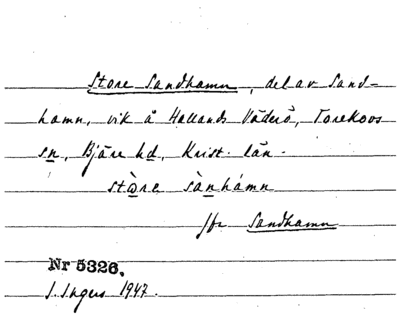 Store Sandhamn, del av Sand-
hamn, vik å Hallands Väderö, Torekovs
sn, Bjäre hd, Krist. län.
stòre sànhámn
jfr Sandhamn
Nr 5326.
S. Ingers 1947.